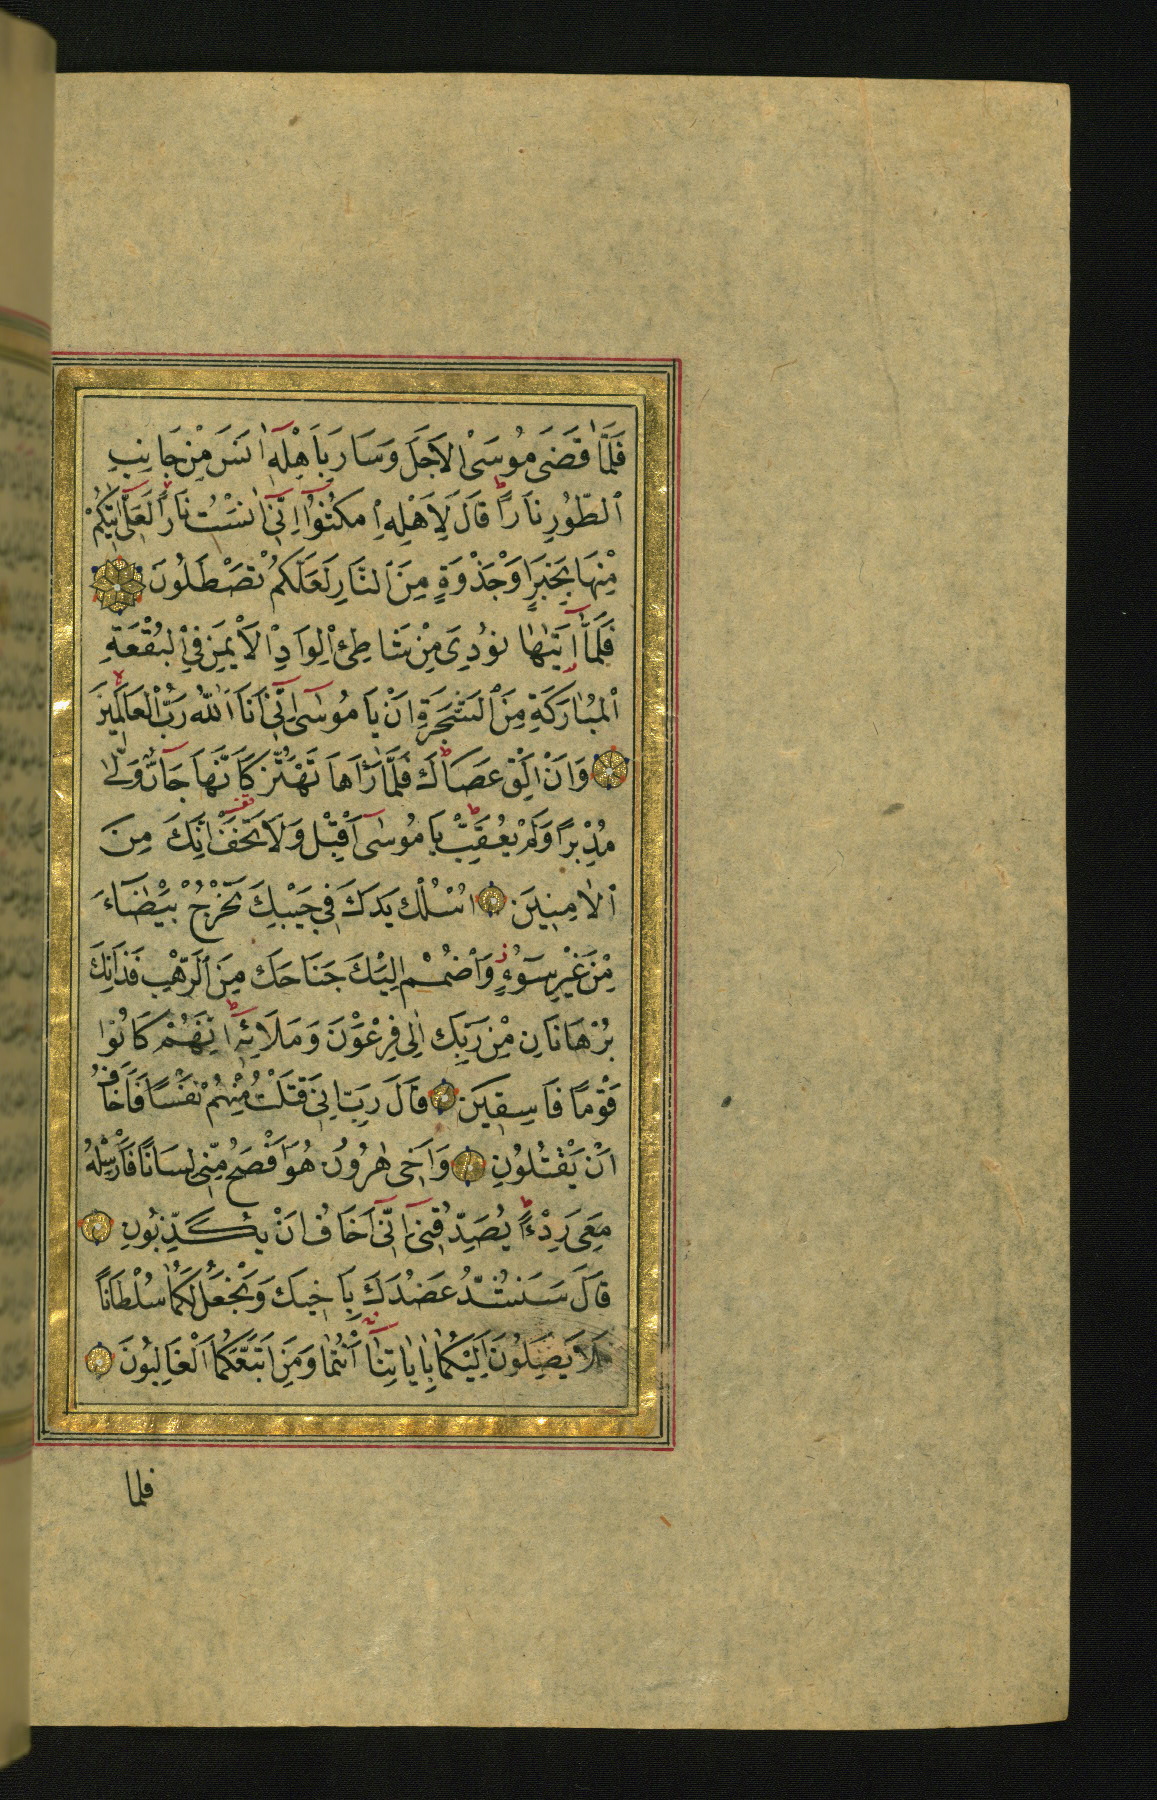 فَلَمَّا قَضَىٰ مُوسَى الْاَجَلَ وَسَارَ بِاَهْلِهٓ اٰنَسَ مِنْ جَانِبِ
الطُّورِ نَارًا قَالَ لِاَهْلِهِ امْكُثُوٓا اِنّٓى اٰنَسْتُ نَارًا لَعَلّٓى اٰتٖيكُمْ
مِنْهَا بِخَبَرٍ اَوْ جَذْوَةٍ مِنَ النَّارِ لَعَلَّكُمْ تَصْطَلُونَ
فَلَمَّٓا اَتٰيهَا نُودِىَ مِنْ شَاطِئِ الْوَادِ الْاَيْمَنِ فِى الْبُقْعَةِ
الْمُبَارَكَةِ مِنَ الشَّجَرَةِ اَنْ يَا مُوسٰٓى اِنّٓى اَنَا اللّٰهُ رَبُّ الْعَالَمٖينَ
وَاَنْ اَلْقِ عَصَاكَ فَلَمَّا رَاٰهَا تَهْتَزُّ كَاَنَّهَا جَٓانٌّ وَلّٰى
مُدْبِرًا وَلَمْ يُعَقِّبْ يَا مُوسٰٓى اَقْبِلْ وَلَا تَخَفْ اِنَّكَ مِنَ
الْاٰمِنٖينَ اُسْلُكْ يَدَكَ فٖى جَيْبِكَ تَخْرُجْ بَيْضَٓاءَ
مِنْ غَيْرِ سُٓوءٍ وَاضْمُمْ اِلَيْكَ جَنَاحَكَ مِنَ الرَّهْبِ فَذَانِكَ
بُرْهَانَانِ مِنْ رَبِّكَ اِلٰى فِرْعَوْنَ وَمَلَائِهٖ اِنَّهُمْ كَانُوا
قَوْمًا فَاسِقٖينَ قَالَ رَبِّ اِنّٖى قَتَلْتُ مِنْهُمْ نَفْسًا فَاَخَافُ
اَنْ يَقْتُلُونِ وَاَخٖى هٰرُونُ هُوَ اَفْصَحُ مِنّٖى لِسَانًا فَاَرْسِلْهُ
مَعِىَ رِدْءًا يُصَدِّقُنٖٓى اِنّٓى اَخَافُ اَنْ يُكَذِّبُونِ
قَالَ سَنَشُدُّ عَضُدَكَ بِاَخٖيكَ وَنَجْعَلُ لَكُمَا سُلْطَانًا
فَلَا يَصِلُونَ اِلَيْكُمَا بِاٰيَاتِنَٓا اَنْتُمَا وَمَنِ اتَّبَعَكُمَا الْغَالِبُونَ
فلما